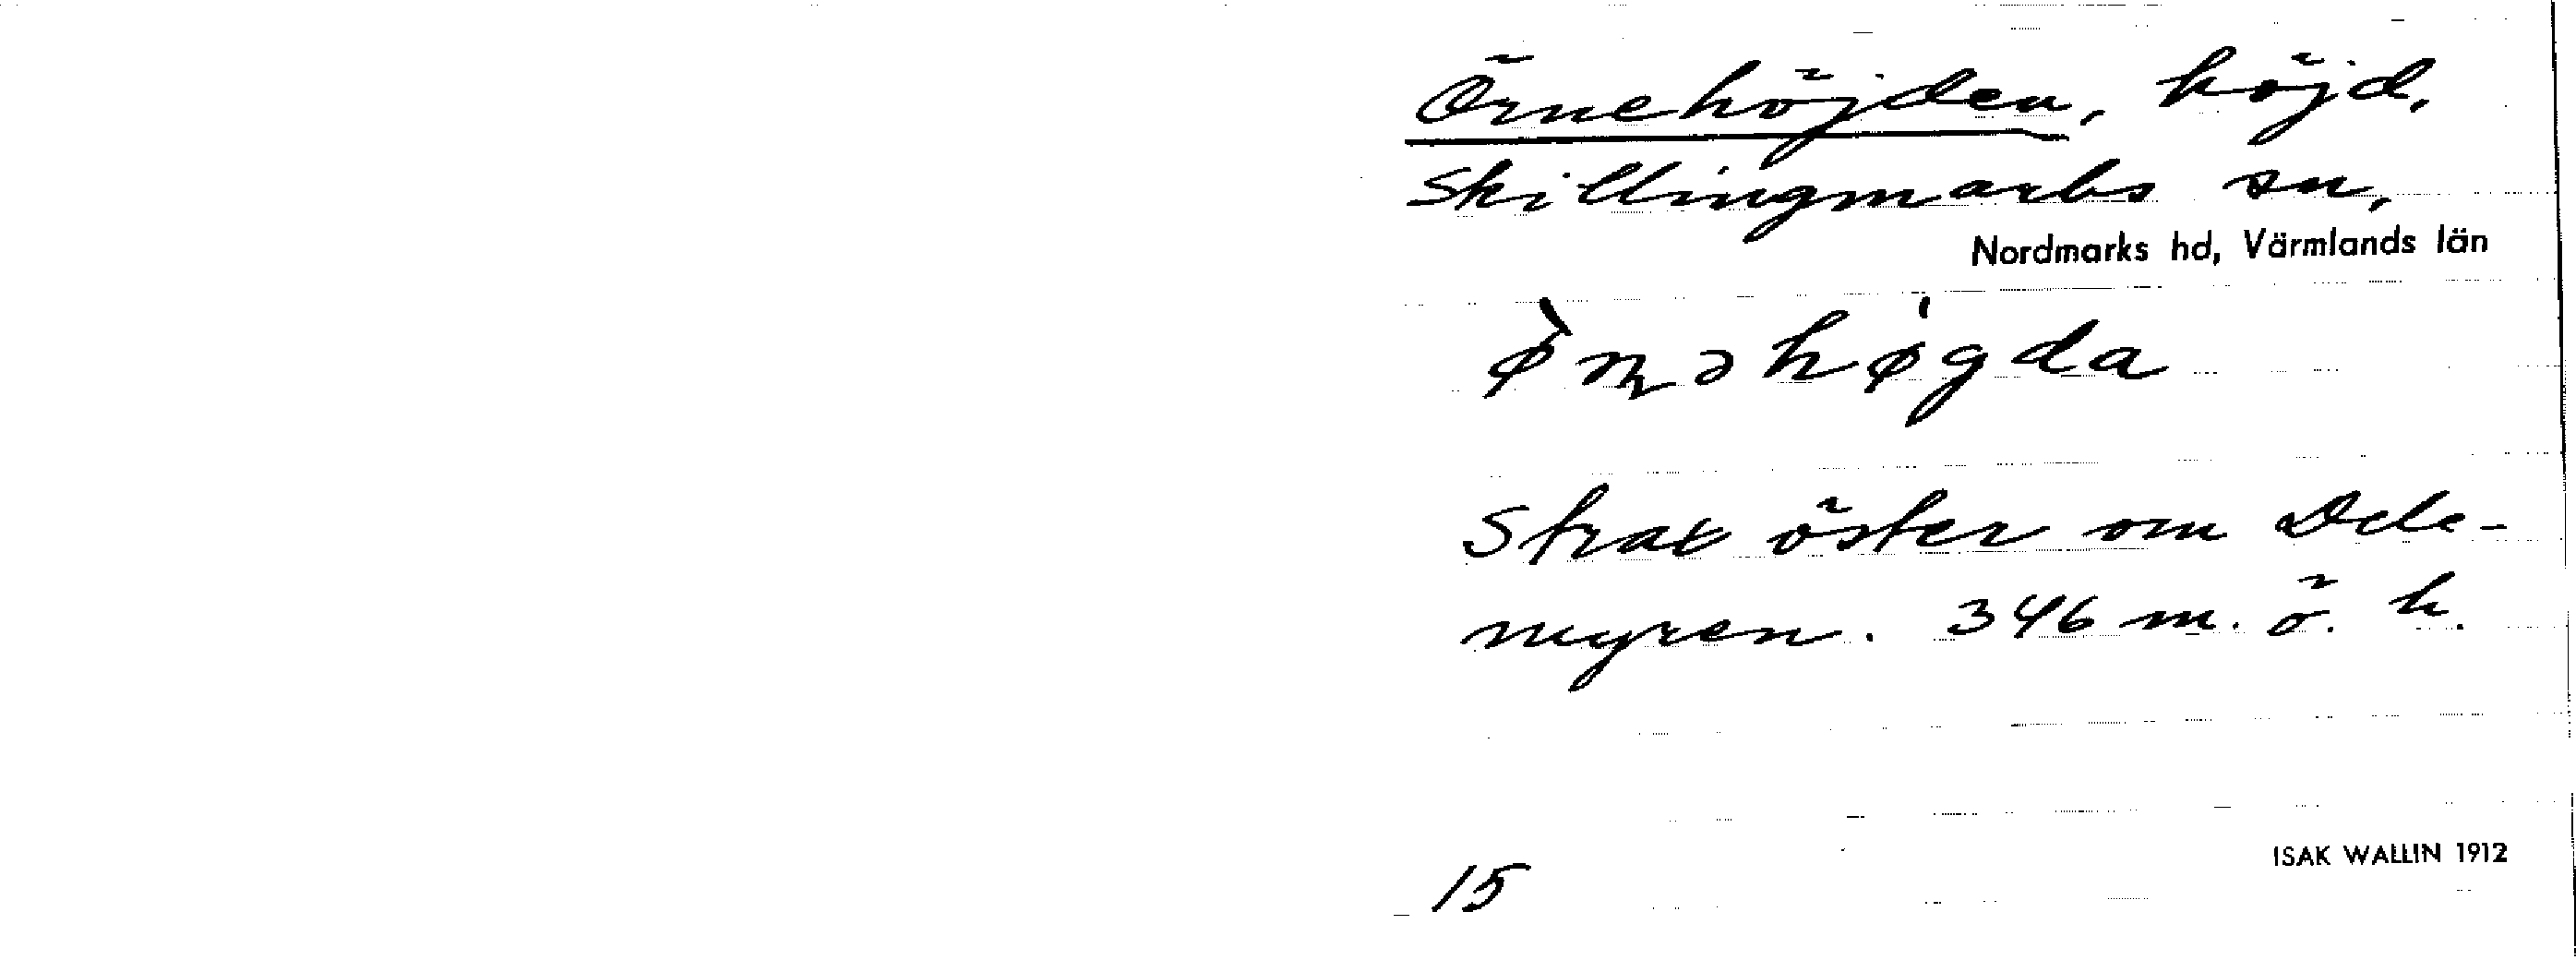 Örnehöjden, höjd,
Skillingmarks sn,
Nordmarks hd, Värmlands län
ø̀ɳəhø̍gda
Strax öster om Dele-
myren. 346 m. ö. h.
15
ISAK WALLIN 1912